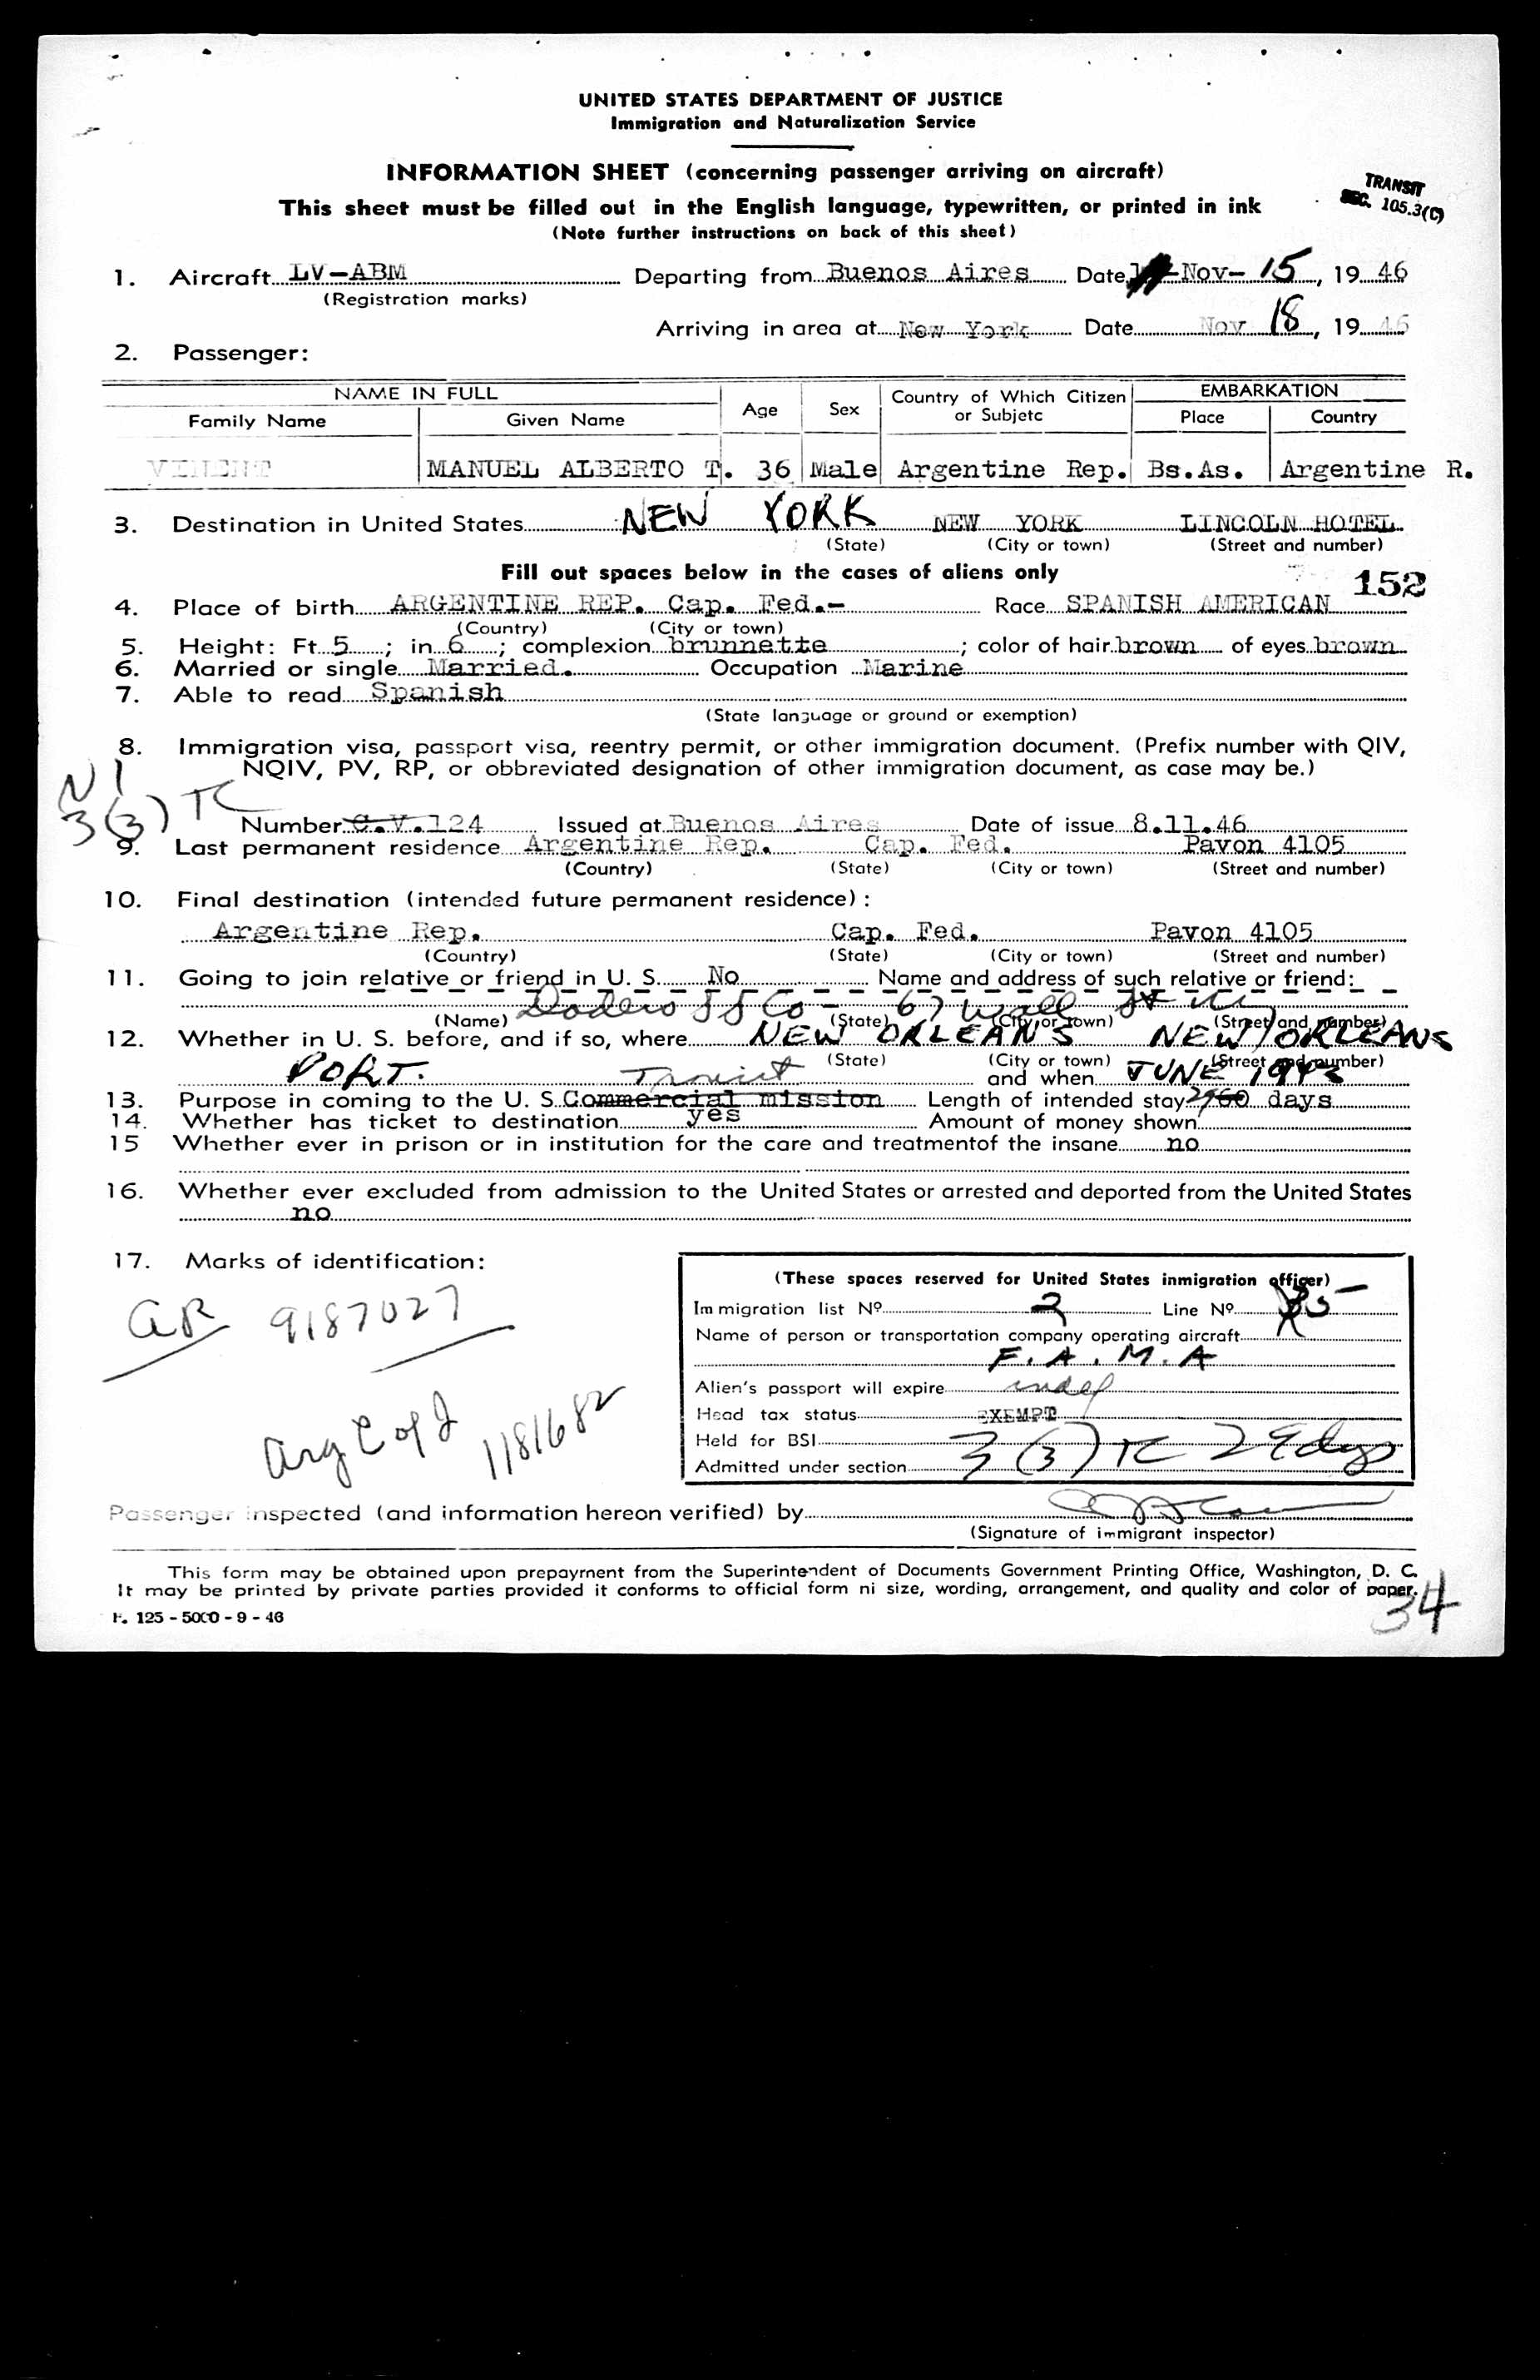 UNITED STATES DEPARTMENT OF JUSTICE
Immigration and Naturalization Service
INFORMATION SHEET (concerning passenger arriving on aircraft)
TRANSIT
SEC. 105.3(C)
This sheet must be filled out in the English language, typewritten, or printed in ink
(Note further instructions on back of this sheet)
1. Aircraft LV-ABM Departing from Buenos Aires Date Nov- 15, 19 46
(Registration marks)
Arriving in area at New York Date Nov 18, 19 46
2. Passenger:
NAME IN FULL Age Sex Country of Which Citizen or Subjetc EMBARKATION
Family Name Given Name Place Country
VIMENT MANUEL ALBERTO T. 36 Male Argentine Rep. Bs.As. Argentine R.
3. Destination in United States NEW YORK NEW YORK LINCOLN HOTEL
(State) (City or town) (Street and number)
Fill out spaces below in the cases of aliens only
152
4. Place of birth ARGENTINE REP. Cap. Fed.- Race SPANISH AMERICAN
(Country) (City or town)
5. Height: Ft 5; in 6; complexion brunnette; color of hair brown of eyes brown
6. Married or single Married. Occupation Marine
7. Able to read Spanish
(State language or ground or exemption)
8. Immigration visa, passport visa, reentry permit, or other immigration document. (Prefix number with QIV,
NQIV, PV, RP, or obbreviated designation of other immigration document, as case may be.)
3(3) TC
Number C.V.124 Issued at Buenos Aires Date of issue 8.11.46
9. Last permanent residence Argentine Rep. Cap. Fed. Pavon 4105
(Country) (State) (City or town) (Street and number)
10. Final destination (intended future permanent residece) :
Argentine Rep. Cap. Fed. Pavon 4105
(Country) (State) (City or town) (Street and number)
11. Going to join relative or friend in U. S. No Name and address of such relative or friend:
Dodero SS Co - 67 Wall St
(Name) (State) (City or town) (Street and number)
12. Whether in U. S. before, and if so, where NEW ORLEANS NEW ORLEANS
(State) (City or town) (Street and number)
PORT. Transit and when JUNE
13. Purpose in coming to the U. S. Commercial mission Length of intended stay 29 60 days
14. Whether has ticket to destination yes Amount of money shown
15 Whether ever in prison or in institution for the care and treatmentof the insane no
16. Whether ever excluded from admission to the United States or arrested and deported from the United States
no
17. Marks of identification:
AR 9187027
Arg C of I 1181682
(These spaces reserved for United States inmigration officer)
Immigration list Nº 2 Line Nº
Name of person or transportation company operating aircraft
F.A.M.A
Alien's passport will expire indef
Head tax status EXEMPT
Held for BSI
Admitted under section 3(3) TC 29 days
Passenger inspected (and information hereon verified) by
(Signature of immigrant inspector)
This form may be obtained upon prepayrnent from the Superintendent of Documents Government Printing Office, Washington, D. C.
It may be printed by private parties provided it conforms to official form ni size, wording, arrangement, and quality and color of paper.
F. 125 - 5000 - 9 - 46
34